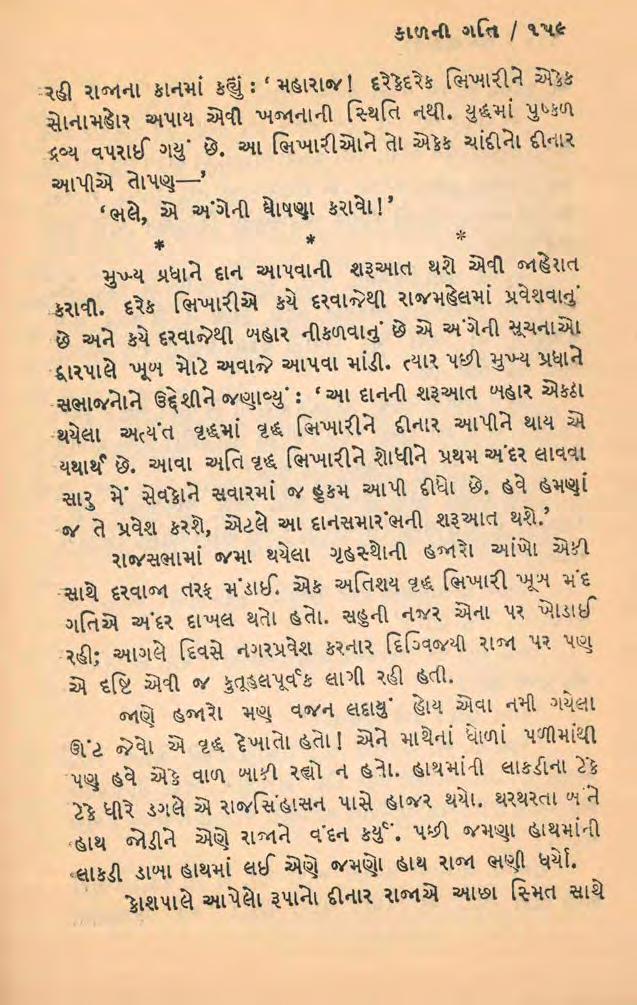 કાળની ગતિ / ૧૫૯
રહી રાજાના કાનમાં કહ્યું : ‘ મહારાજ! દરેકેદરેક ભિખારીને એકેક
સોનામહોર અપાય એવી ખજાનાની સ્થિતિ નથી. યુદ્ધમાં પુષ્કળ
દ્રવ્ય વપરાઈ ગયું છે. આ ભિખારીઓને તો એકેક ચાંદીનો દીનાર
આપીએ તોપણ—’
‘ભલે, એ અંગેની ઘોષણા કરાવો!’
* * *
મુખ્ય પ્રધાને દાન આપવાની શરૂઆત થશે એવી જાહેરાત
કરાવી. દરેક ભિખારીએ કયે દરવાજેથી રાજમહેલમાં પ્રવેશવાનું
છે અને કયે દરવાજેથી બહાર નીકળવાનું છે એ અંગેની સૂચનાઓ
દ્વારપાલે ખૂબ મોટે અવાજે આપવા માંડી. ત્યાર પછી મુખ્ય પ્રધાને
સભાજનોને ઉદ્દેશીને જણાવ્યું : ‘આ દાનની શરૂઆત બહાર એકઠા
થયેલા અત્યંત વૃદ્ધમાં વૃદ્ધ ભિખારીને દીનાર આપીને થાય એ
યથાર્થ છે. આવા અતિ વૃદ્ધ ભિખારીને શોધીને પ્રથમ અંદર લાવવા
સારુ મેં સેવકોને સવારમાં જ હુકમ આપી દીધો છે. હવે હમણાં
જ તે પ્રવેશ કરશે, એટલે આ દાનસમારંભની શરૂઆત થશે.’
રાજસભામાં જમા થયેલા ગૃહસ્થોની હજારો આંખો એકી
સાથે દરવાજા તરફ મંડાઈ. એક અતિશય વૃદ્ધ ભિખારી ખૂબ મંદ
ગતિએ અંદર દાખલ થતો હતો. સહુની નજર એના પર ખોડાઈ
રહી; આગલે દિવસે નગરપ્રવેશ કરનાર દિગ્વિજયી રાજા પર પણ
એ દૃષ્ટિ એવી જ કુતૂહલપૂર્વક લાગી રહી હતી.
જાણે હજારો મણ વજન લદાયું હોય એવા નમી ગયેલા
ઊંટ જેવો એ વૃદ્ધ દેખાતો હતો! એને માથેનાં ધોળાં પળીમાંથી
પણ હવે એકે વાળ બાકી રહ્યો ન હતો. હાથમાંની લાકડીના ટેકે
ટેકે ધીરે ડગલે એ રાજસિંહાસન પાસે હાજર થયો. થરથરતા બંને
હાથ જોડીને એણે રાજાને વંદન કર્યું. પછી જમણા હાથમાંની
લાકડી ડાબા હાથમાં લઈ એણે જમણો હાથ રાજા ભણી ધર્યો.
કોશપાલે આપેલો રૂપાનો દીનાર રાજાએ આછા સ્મિત સાથે